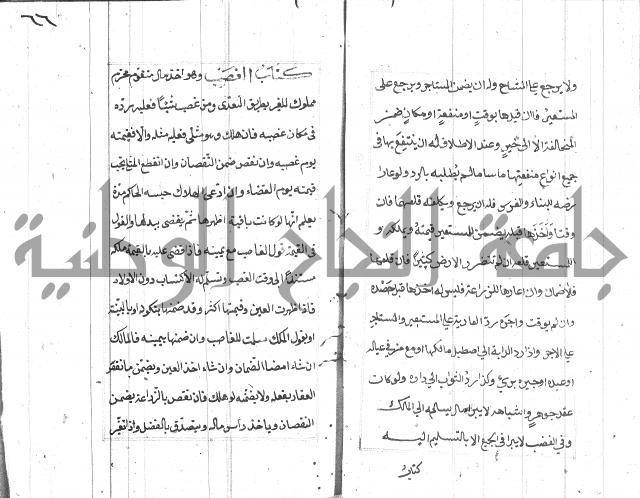 ٦٦
ولا يرجع على المستأجر وله ان يضمن المستاجر ويرجع على
المستعير فان قيدها بوقت او منفعة او مكان ضمن
بالمخالفة الا الى خير وعند الاطلاق له ان ينتفع بها في
جميع انواع منفعتها ما شاء ما لم يطالبه بالرد ولو اعار
ارضه للبناء والغرس فله ان يرجع ويكلفه قلعهما فان
وقت واخذها قبله يضمن للمستعير قيمته ويملكه و
للمستعير قلعه ان لم تتضرر الارض كثيرا فان قلعها
فلا ضمان وان اعارها للزراعة فليس له اخذها قبل حصده
وان لم يوقت واجرة رد العارية على المستعير والمستاجر
على الاجر واذا رد الدابة الى اصطبل مالكها او مع من في عياله
او عبده او اجيره بري وكذا رد الثوب الى داره ولو كانت
عقد جوهر او اشباهه لا يبرا ما لم يسلم الى المالك
وفي الغصب لا يبرا في الجميع الا بالتسليم اليه
كتاب
كتاب الغصب وهو اخذ مال متقوم محترم
مملوك للغير بطريق التعدى ومن غصب شيئا فعليه رده
في مكان غصبه فان هلك وهو مثلي فعليه مثله والا فقيمته
يوم غصبه وان نقص ضمن النقصان وان انقطع المثل يجب
قيمته يوم القضاء وان ادعى الهلاك حبسه الحاكم مدة
يعلم انها لو كانت باقية اظهرها ثم يقضي ببدلها والقول
في القيمة قول الغاصب مع يمينه فاذا قضى عليه بالقيمة ملكه
مستندا الى وقت الغصب وتسلم له الاكساب دون الاولاد
فاذا ظهرت العين وقيمتها اكثر وقد ضمنها بنكوله او بالبينة
او بقول المالك سلمت للغاصب وان ضمنها بيمينه فالمالك
ان شاء امضا الضمان وان شاء اخذ العين ويضمن ما نقص
العقار بفعله ولا يضمنه لو هلك فان نقص بالزراعة يضمن
النقصان وياخذ راس ماله ويتصدق بالفضل واذا تغير
جامعة النجاح الوطنية